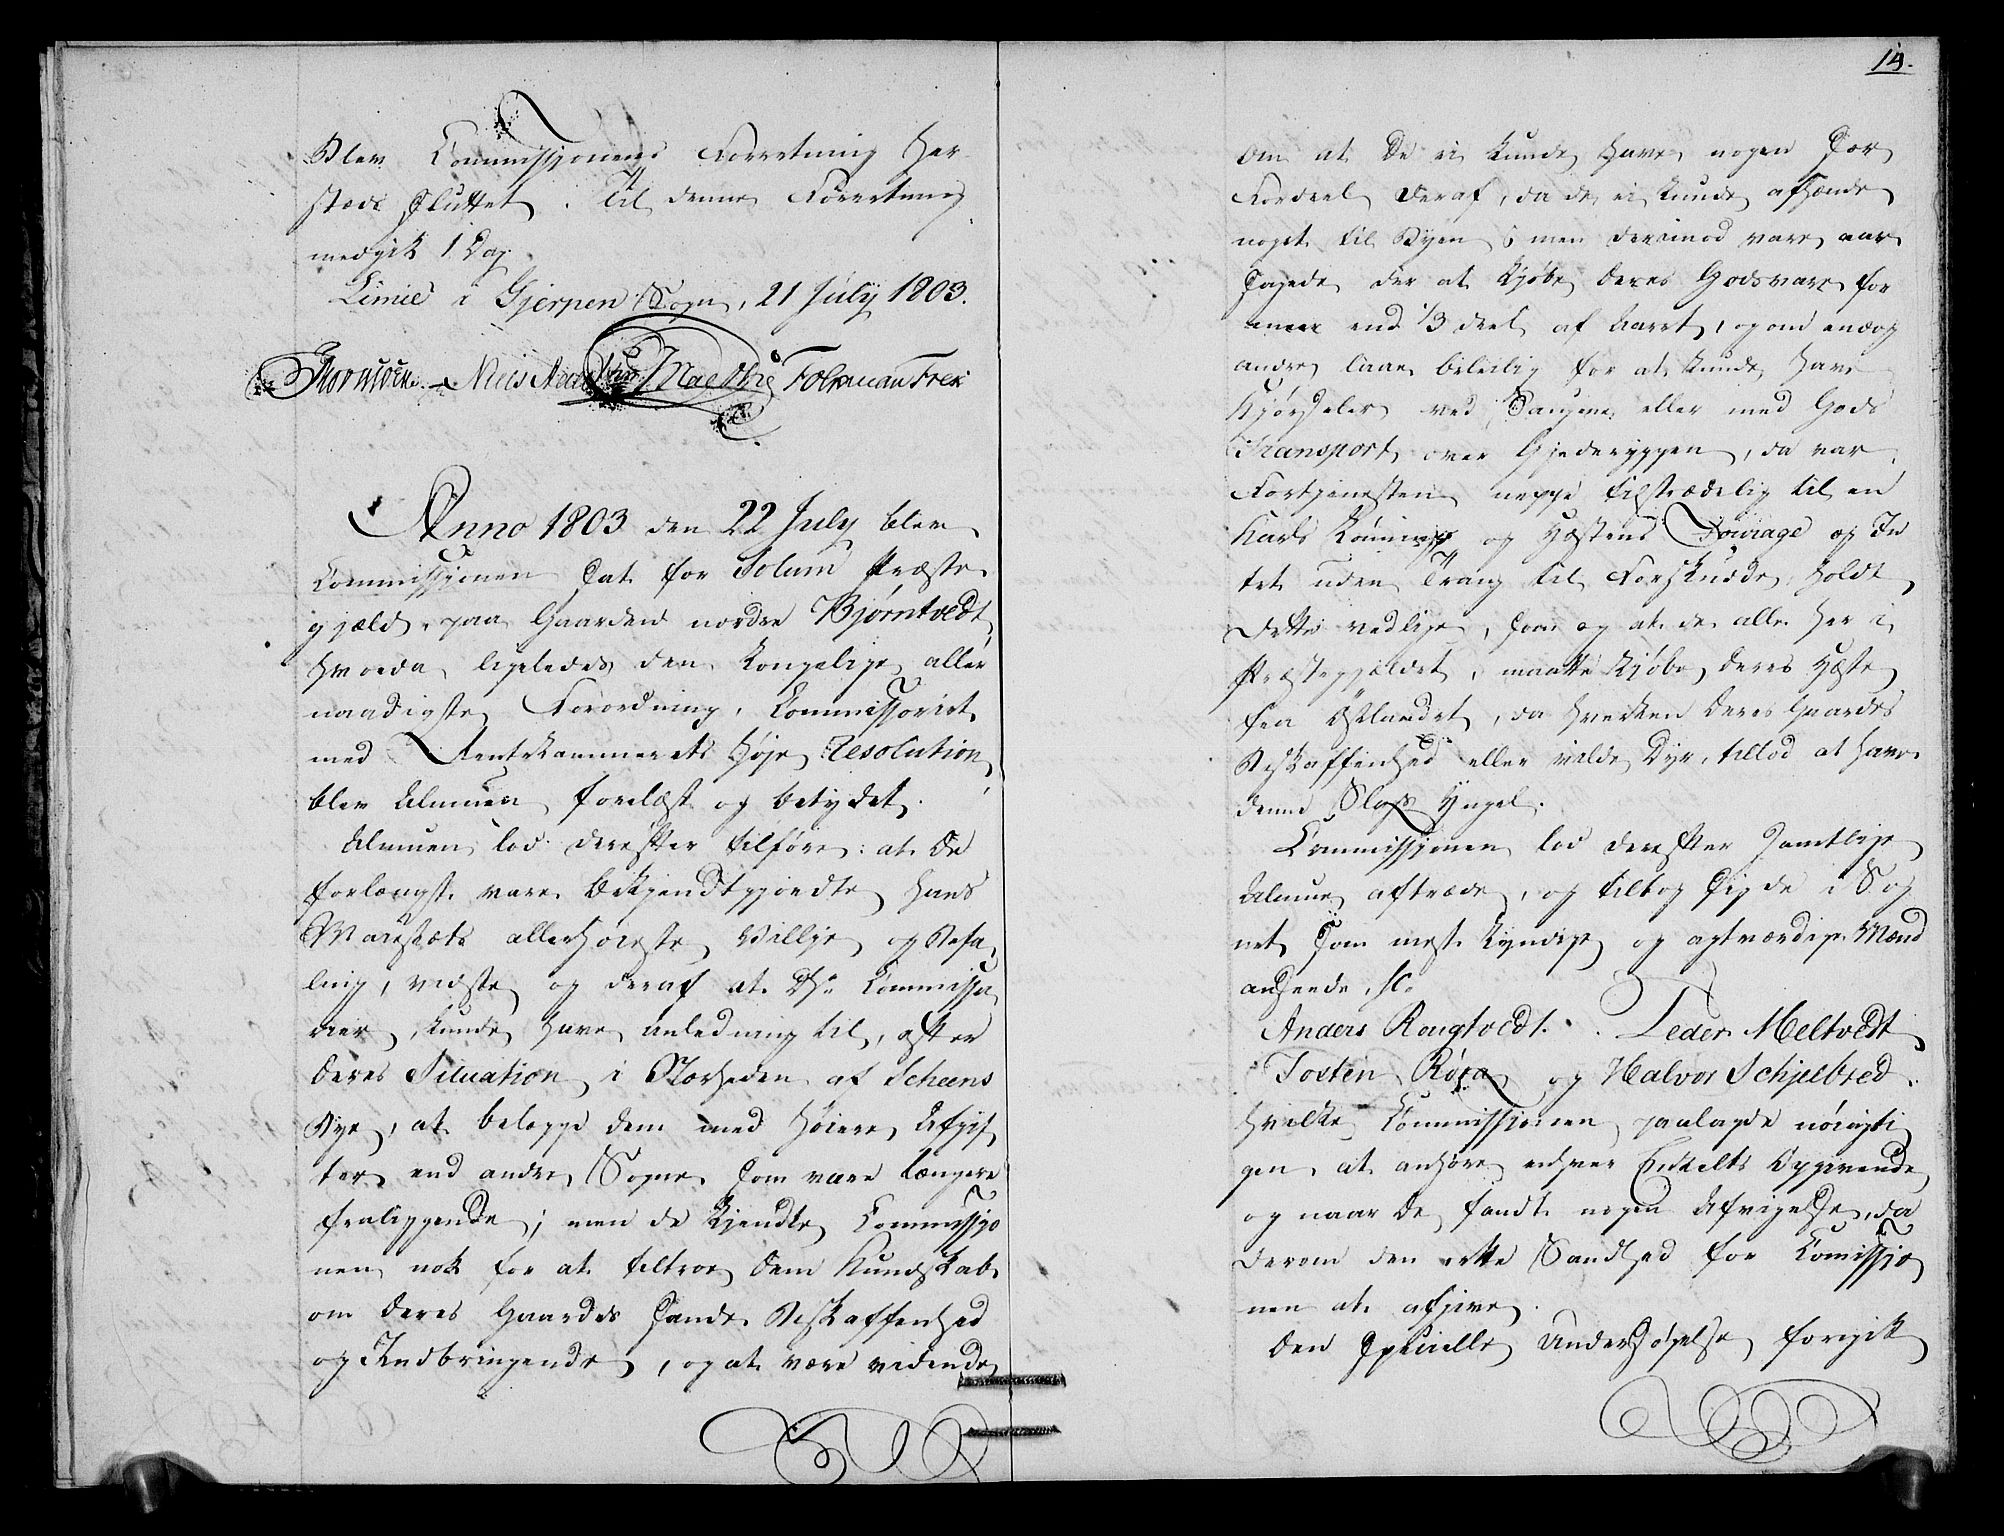 Blev Commissjonens Forretning her
steds sluttet. Til denne Forretning
medgik 1 Dag.
Limie i Gjerpen Sogn, 21 July 1803.
Folkman Frex
Anno 1803 den 22 July blev
Commissjonen sat for Solum Præste-
gjæld, paa Gaarden nordre Bjørntvedt,
hvorda ligeledes den kongelige aller
naadigste Forordning, Commissoriet
med Rentekammerets høje Resolution,
blev Almuen forelæst og betydet.
Almuen lod derefter tilføre: at de
forlængst vare bekjendtgjordte Hans
Majestæts allerhøieste Villje og Befa,
ling, vidste og deraf at Hr. Commissa,
rier kunde have Anledning til, efter
deres Situation i Nærheden af Scheens
Bye, at belegge dem med høiere Afgif,
ter end andre Sogne som vare længere
fraliggende; men de kjendte Commissjo
nen nok for at tiltroe dem Kundskab
om deres Gaardes sande Beskaffenhed
og Indbringende, og at være vidende
14.
om at de ei kunde have nogen stor
Fordeel deraf, da de ei kunde afhænde
noget til Byen; men derimod vare aar
sagede der at kjøbe deres Godsvare for
meer end 1/3 deel af Aaret, og om endog
andre laae beleilig for at kunde have
Kjørseler ved Saugene eller med Gods
Transport over Gjederyggen, da var
Fortjenesten neppe tilstrædelig til en
Karls Lønning og Hæstens Fourage og In
tet uden Trang til Forskudde, holdt
dette vedlige, som og at de alle her i
Præstegjældet, maatte kjøbe deres Hæste
fra Østlandet, da hverken deres Gaardes
Beskaffenhed eller vilde Dyr, tillod at have
denne Slags Yngel.
Commissjonen lod derefter samtlige
Almue aftræde, og tiltog sig de i Sog
net som mest kyndige og agtværdige Mænd
anseede, sc.
Anders Rougtvedt. Peder Meltvedt
Tosten Røra og Halvor Schjelbred.
hvilke Commissjonen paalagde nøiagti
gen at anhøre enhver Enkelts Opgivende
og naar de fandt nogen Afvigelse, da
derom den rette Sandhed for Comissjo
nen at afgive.
Den specielle Undersøgelse foregik